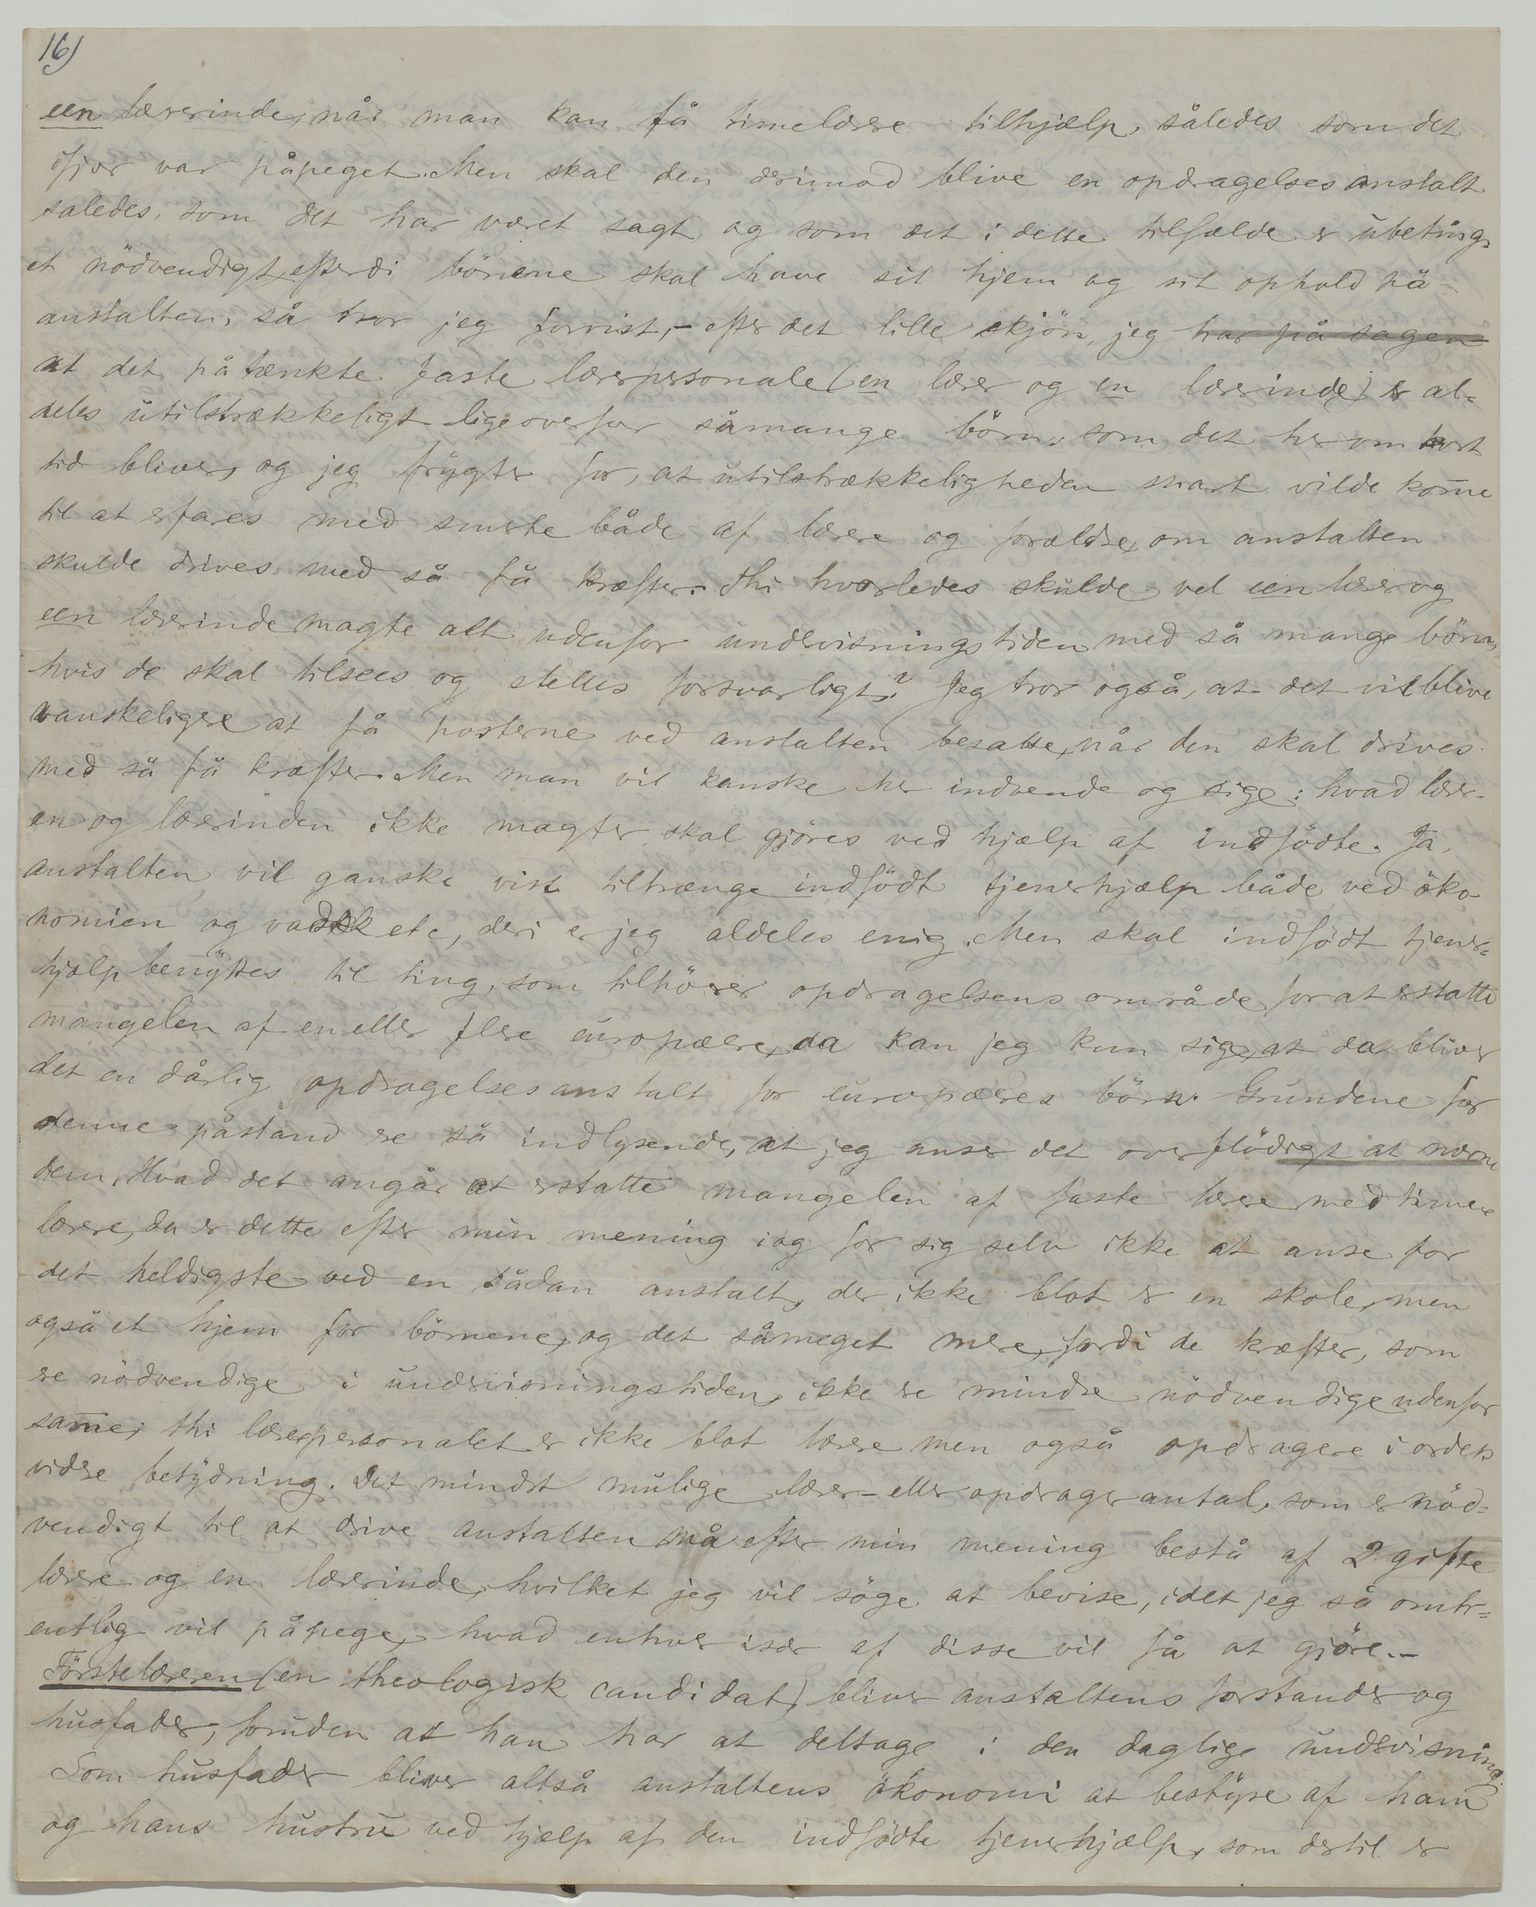 16)
een lærerinde, når man kan få timelærere tilhjælp, således som det
ifjor var påpeget. Men skal den derimod blive en opdragelsesanstalt
således, som det har været sagt, og som det i dette tilfælde er ubeting-
et nödvendigt, efterdi börnene skal have sit hjem og sit ophold på
anstalten, så tror jeg forvist, – efter det lille skjön, jeg har på sagen
at det påtænkte faste lærerpersonale (en lærer og en lærerinde) er al-
deles utilstrækkeligt ligeoverfor såmange börn, som det her om kort
tid bliver, og jeg frygter for, at utilstrækkeligheden snart vilde kom̄e
til at erfares med smerte både af lærere og forældre, om anstalten
skulde drives med så få kræfter. Thi hvorledes skulde vel een lærer og
een lærerinde magte alt udenfor undervisningstiden med så mange börn,
hvis de skal tilsees og stelles forsvarligt? Jeg tror også, at det vil blive
vanskeligere at få posterne ved anstalten besatte, når den skal drives
med så få kræfter. Men man vil kanske her indvende og sige: hvad lærer-
en og lærerinden ikke magter, skal gjöres ved hjælp af indfödte. Ja,
anstalten vil ganske vist tiltrænge indfödt tjenerhjælp både ved öko-
nomien og vadsk etc, deri er jeg aldeles enig. Men skal indfödt tjener-
hjælp benyttes til ting, som tilhörer opdragelsens område, for at erstatte
mangelen af en eller flere europæere, da kan jeg kun sige, at da bliver
det en dårlig opdragelsesanstalt for europæeres börn. Grundene for
denne påstand ere så indlysende, at jeg anser det overflödigt at nævne
dem. Hvad det angår at erstatte mangelen af faste lærere med time-
lærere, da er dette efter min mening i og for sig selv ikke at anse for
det heldigste ved en sådan anstalt, der ikke blot er en skole, men
også et hjem for börnene, og det såmeget mere, fordi de kræfter, som
ere nödvendige i undervisningstiden, ikke ere mindre nödvendige udenfor
sam̄e; thi lærerpersonalet er ikke blot lærere men også opdragere i ordets
videre betydning. Det mindst mulige lærer- eller opdragerantal, som er nöd-
vendigt til at drive anstalten må efter min mening bestå af 2 gifte
lærere og en lærerinde, hvilket jeg vil söge at bevise, idet jeg så omtr-
entlig vil påpege, hvad enhver især af disse vil få at gjöre. –
Förstelæreren (en theologisk candidat) bliver anstaltens forstander og
husfader, foruden at han har at deltage i den daglige undervisning.
Som husfader bliver altså anstaltens ökonomi at bestyre af ham
og hans hustru ved hjælp af den indfödte tjenerhjælp, som dertil er